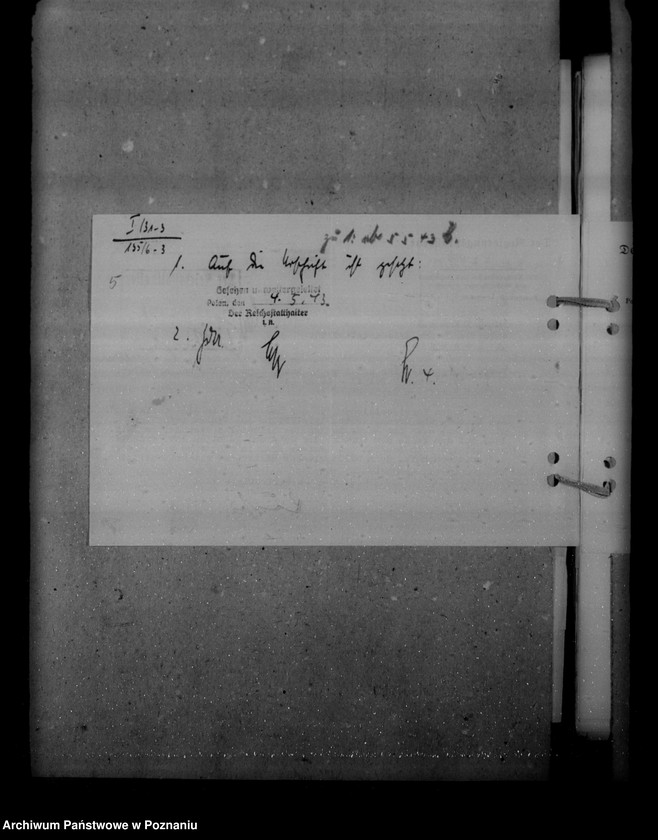 I/31-3
135/6-3
zu 1: ab 5 5 43
1. Auf die Urschrift ist gesetzt:
5
Gesehen u. weitergeleitet
Posen, den 4. 5. 43.
Der Reichsstatthalter
i.A.
2.
De
Archiwum Państwowe w Poznaniu